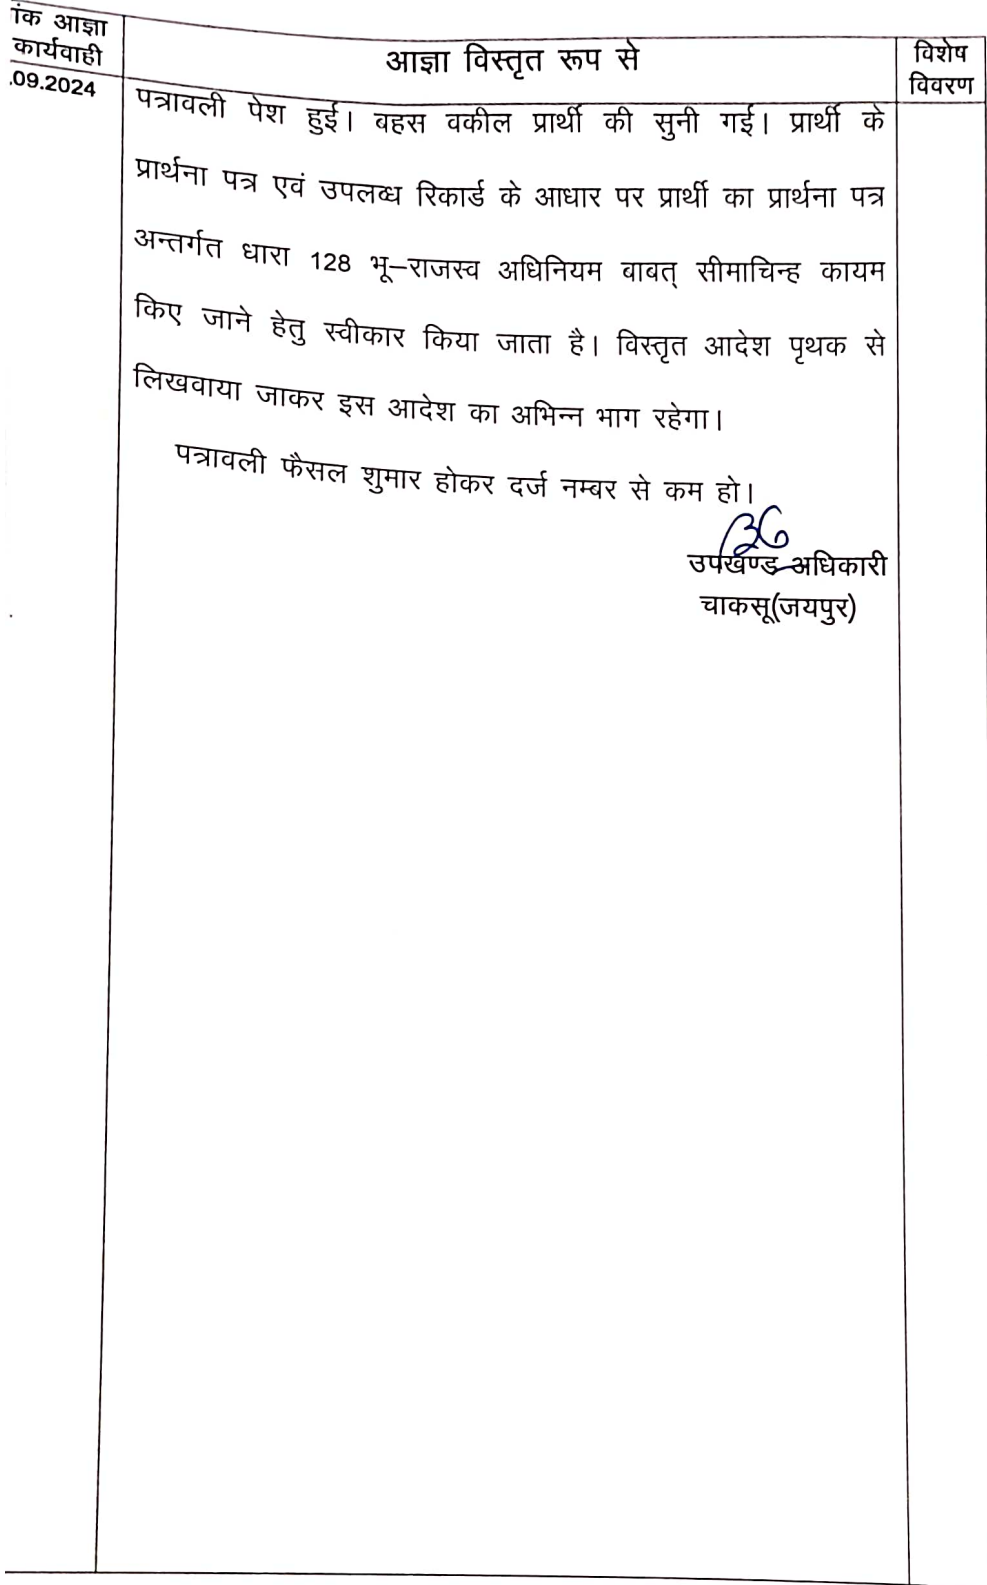 ांक आज्ञा
कार्यवाही
आज्ञा विस्तृत रूप से
विशेष
विवरण
.09.2024
पत्रावली पेश हुई। बहस वकील प्रार्थी की सुनी गई। प्रार्थी के
प्रार्थना पत्र एवं उपलब्ध रिकार्ड के आधार पर प्रार्थी का प्रार्थना पत्र
अन्तर्गत धारा 128 भू–राजस्व अधिनियम बाबत् सीमाचिन्ह कायम
किए जाने हेतु स्वीकार किया जाता है। विस्तृत आदेश पृथक से
लिखवाया जाकर इस आदेश का अभिन्न भाग रहेगा।
पत्रावली फैसल शुमार होकर दर्ज नम्बर से कम हो।
उपखण्ड अधिकारी
चाकसू(जयपुर)